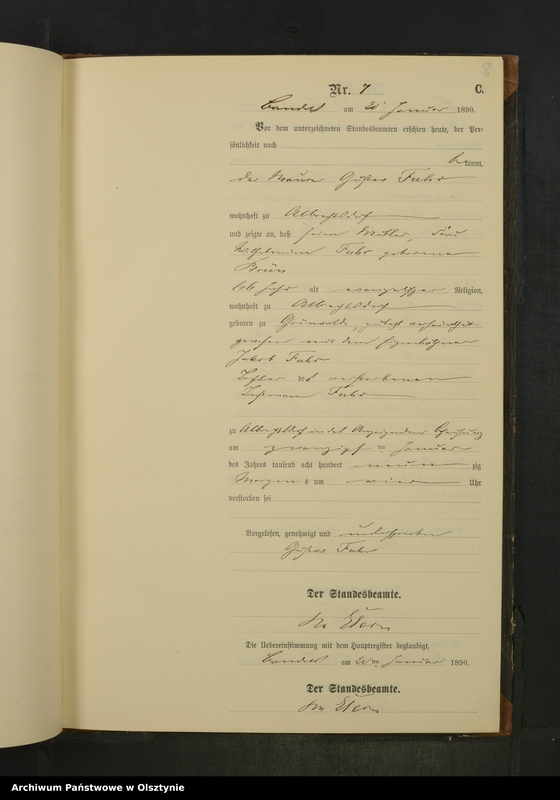 8
Nr. 7 C.
am 20 Januar 1890.
Vor dem unterzeichneten Standesbeamten erschien heute, der Per-
sönlichkeit nach
kannt,
der Maurer Gustav Fuhr
wohnhaft zu Albrechtsdorf
und zeigte an, daß seine Mutter, Frau
Wilhelmine Fuhr geborene
Jahr alt evangelischer Religion,
wohnhaft zu Albrechtsdorf
geboren zu Grünwalde, zuletzt verheirathet
gewesen mit dem Eigenkäthner
Jakob Fuhr
Tochter des verstorbenen
zu Albrechtsdorf in des Anzeigenden Behausung
am zwanzigsten Januar
des Jahres tausend acht hundert neun zig
Morgens um vier Uhr
verstorben sei
Vorgelesen, genehmigt und unterschrieben
Gustav Fuhr
Der Standesbeamte.
Die Uebereinstimmung mit dem Hauptregister beglaubigt.
am 20ten Januar 1890.
Der Standesbeamte.
Archiwum Państwowe w Olsztynie